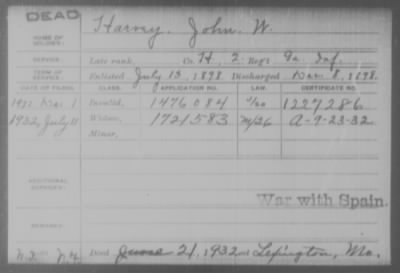 DEAD
NAME OF SOLDIER: Harvey, John W.
SERVICE: Late rank, Co. H, 2 Reg't Ga. Inf.
TERM OF SERVICE: Enlisted July 13, 1898 Discharged Nov. 8, 1898.
DATE OF FILING. CLASS. APPLICATION NO. LAW. CERTIFICATE NO.
Invalid, 1476084 1227286
1932, July 11 Widow, 1721583 A-9-23-32
Minor,
ADDITIONAL SERVICES:
War with Spain.
REMARKS:
Died June 21, 1932 at Lexington, Mo.